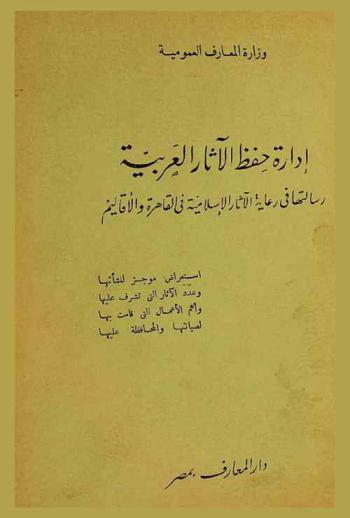 وزارة المعارف العمومية
إدارة حفظ الآثار العربية
رسالتها في رعاية الآثار الإسلامية في القاهرة والأقاليم
استعراض موجز لنشأتها
وعدد الآثار التى تشرف عليها
وأهم الأعمال التى قامت بها
لصيانتها والمحافظة عليها
دار المعارف بمصر